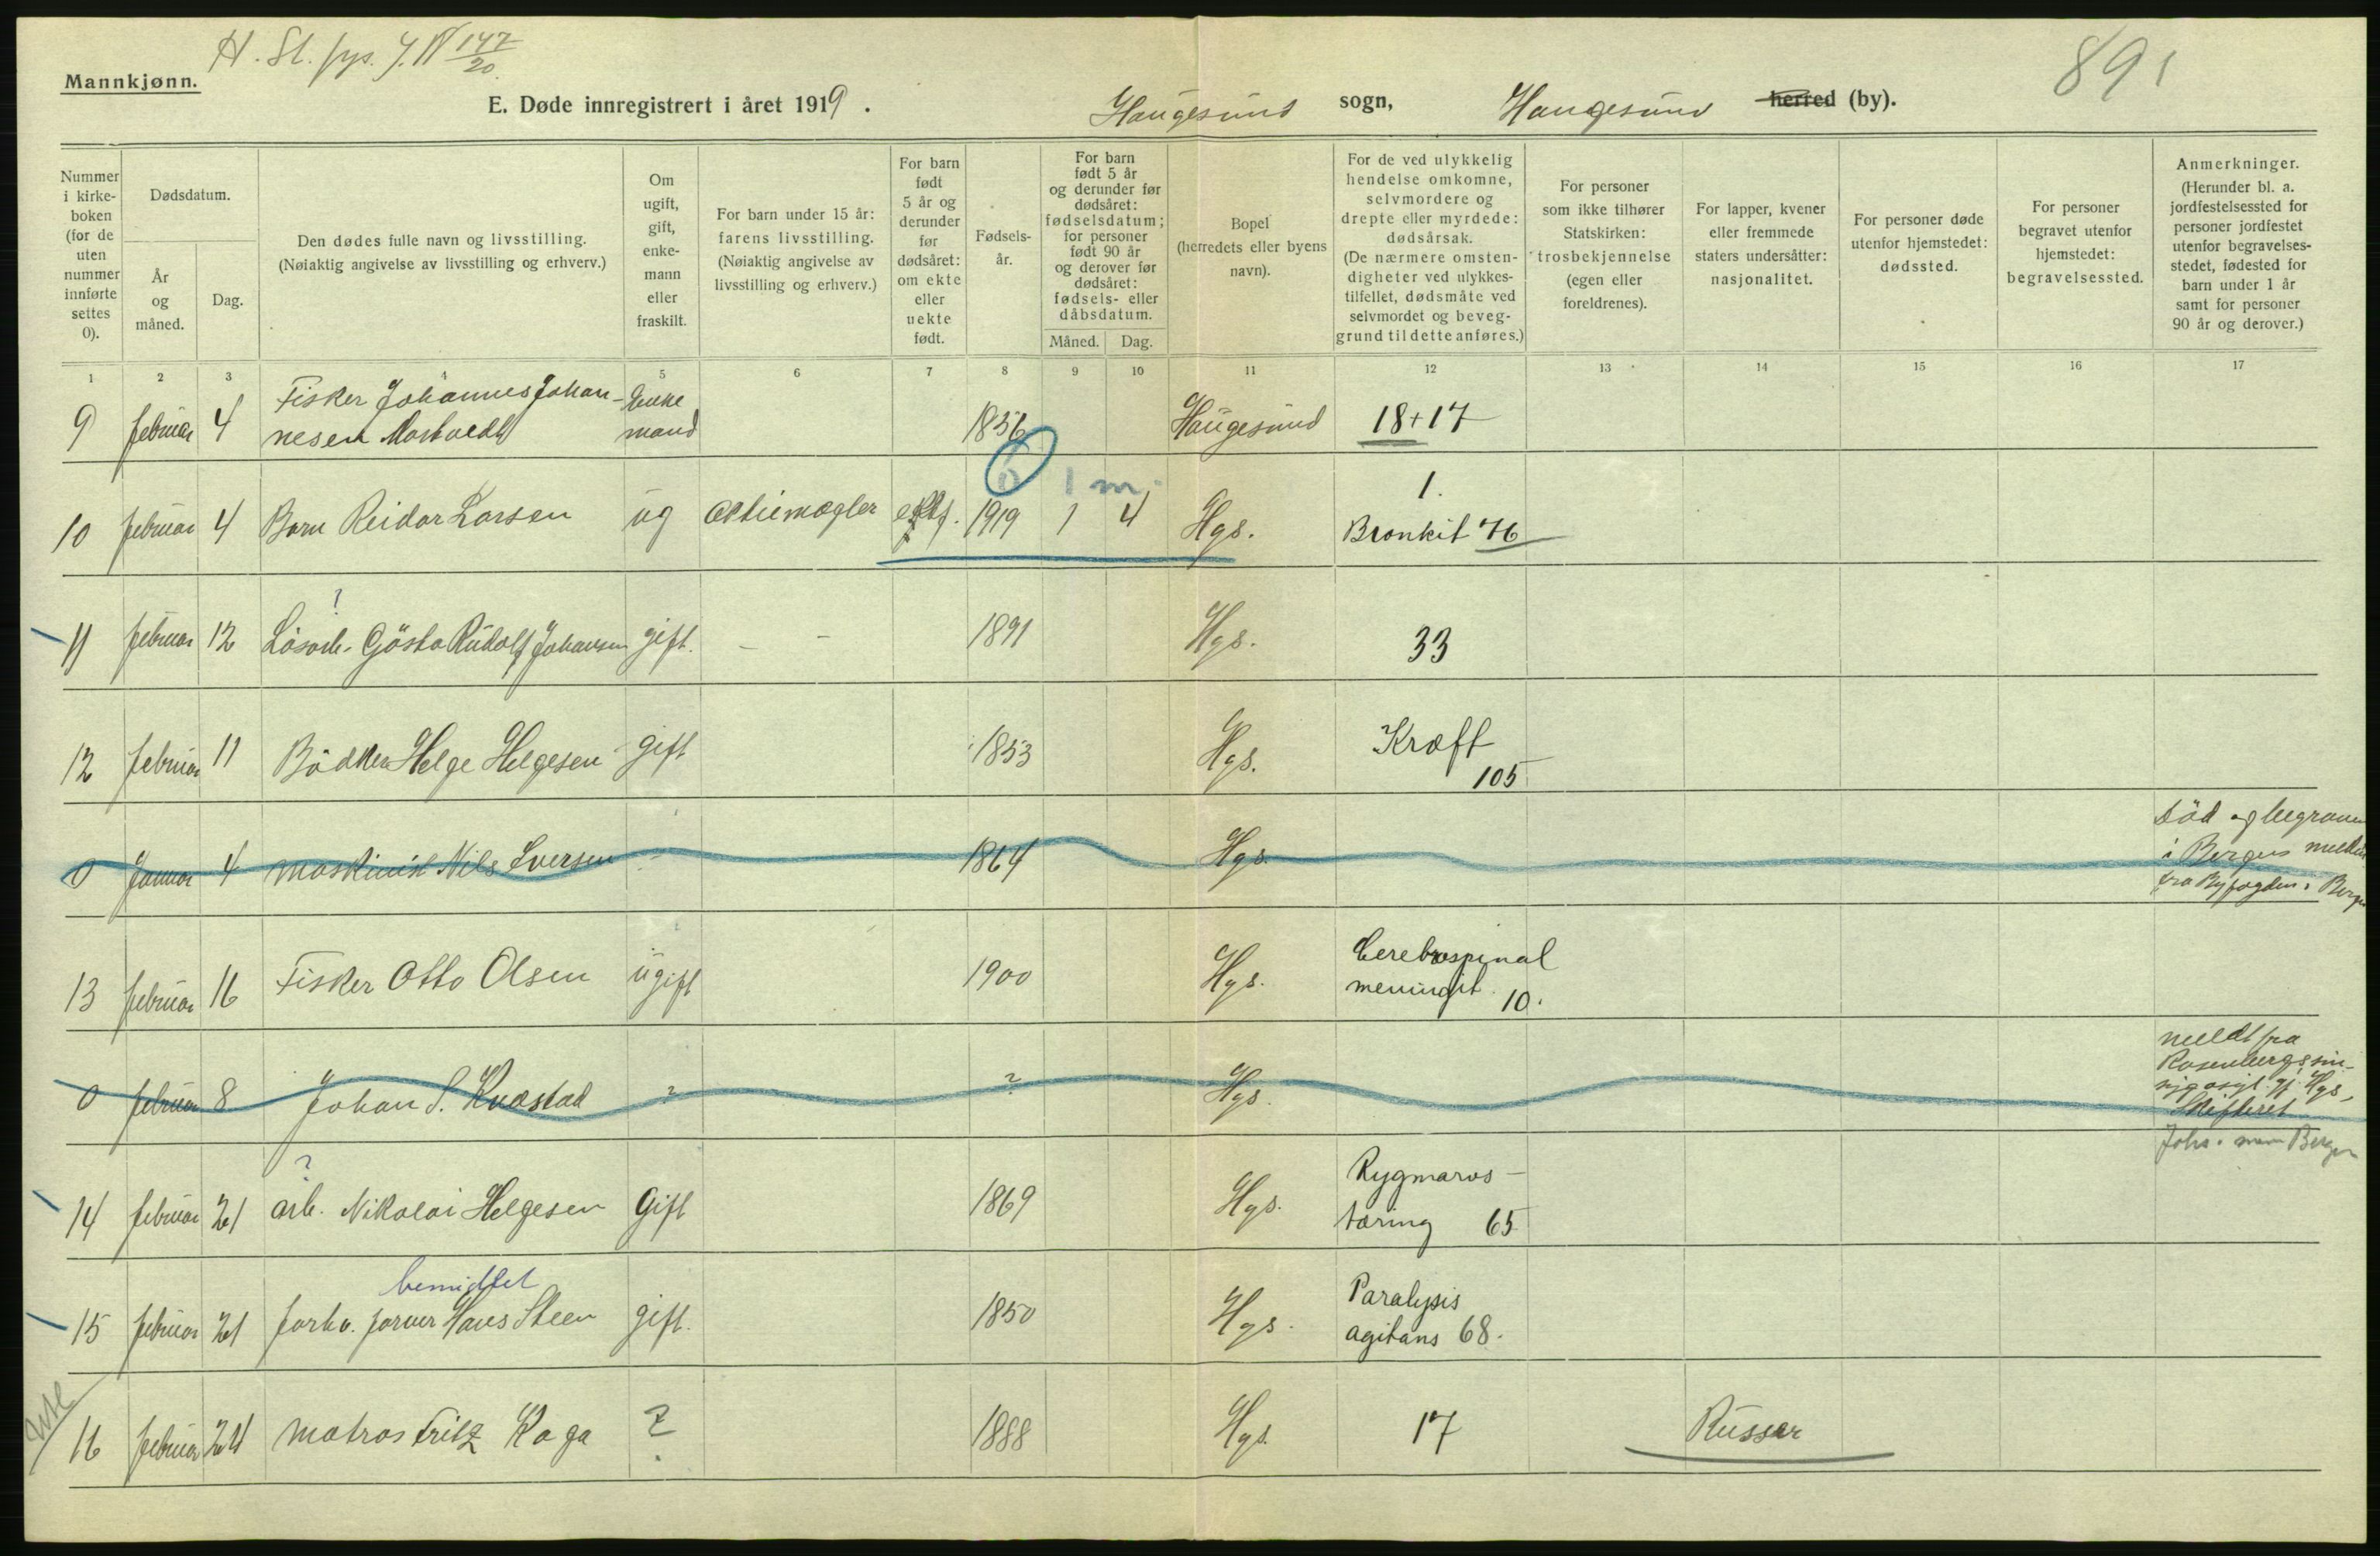 Mannkjønn.
H. St.
147
20
891
E. Døde innregistrert i året 1919.
Haugesund sogn, Haugesund herred (by).
Nummer i kirkeboken (for de uten nummer innførte settes 0).
Dødsdatum.
År og måned.
Dag.
Den dødes fulle navn og livsstilling.
(Nøiaktig angivelse av livsstilling og erhverv.)
Om ugift, gift, enkemann eller fraskilt.
For barn under 15 år: farens livsstilling.
(Nøiaktig angivelse av livsstilling og erhverv.)
For barn født 5 år og derunder før dødsåret: om ekte eller uekte født.
Fødselsår.
For barn født 5 år og derunder før dødsåret: fødselsdatum; for personer født 90 år og derover før dødsåret: fødsels- eller dåbsdatum.
Måned.
Dag.
Bopel (herredets eller byens navn).
For de ved ulykkelig hendelse omkomne, selvmordere og drepte eller myrdede: dødsårsak.
(De nærmere omstendigheter ved ulykkestilfellet, dødsmåte ved selvmordet og beveggrund til dette anføres.)
For personer som ikke tilhører Statskirken: trosbekjennelse (egen eller foreldrenes).
For lapper, kvener eller fremmede staters undersåtter: nasjonalitet.
For personer døde utenfor hjemstedet: dødssted.
For personer begravet utenfor hjemstedet: begravelsessted.
Anmerkninger.
(Herunder bl. a. jordfestelsessted for personer jordfestet utenfor begravelsesstedet, fødested for barn under 1 år samt for personer 90 år og derover.)
1 2 3 4 5 6 7 8 9 10 11 12 13 14 15 16 17
9 februar 4 Fisker Johannes Johannesen Enkemand 1856 Haugesund 18+17
0 1 m.
10 februar 4 Barn Reidar Larsen ug Aktiemægler ekte f. 1919 1 4 Hgs. 1. Bronkit 76
?
11 februar 12 Gösta Rudolf Johansen gift. - - 1891 Hgs. 33
12 februar 11 Bödker Helge Helgesen gift 1853 Hgs. Kræft 105
0 Januar 4 Maskinist Nils Iversen - 1864 Hgs. Död og begraven i Bergen meldt fra Byfogden i Bergen
13 februar 16 Fisker Otto Olsen ugift 1900 Hgs. Cerebrospinal meningit 10.
0 februar 8 Johan S. Knastad ? ? Hgs. meldt fra Rosenbergs sinsygeasyl gj. Hgs. Skifteret
Bergen
?
14 februar 21 arb. Nikolai Helgesen Gift 1869 Hgs. Rygmarvstæring 65
bemidlet
15 februar 21 forhv. farver Hans Steen gift. 1850 Hgs. Paralysis agitans 68.
16 februar 24 Matros Fritz Kaga ? 1888 Hgs. 17 Russer